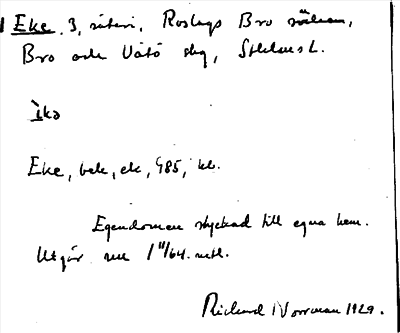 1 Eke 3, säteri, Roslags Bro socken,
Bro och Vätö skg, Sthlms L.
Ìkə
Eke, bek, ek, 485, kb.
Egendomen styckad till egna hem.
Utgör nu 1 11/64 mtl.
Rickard Norrman 1929.